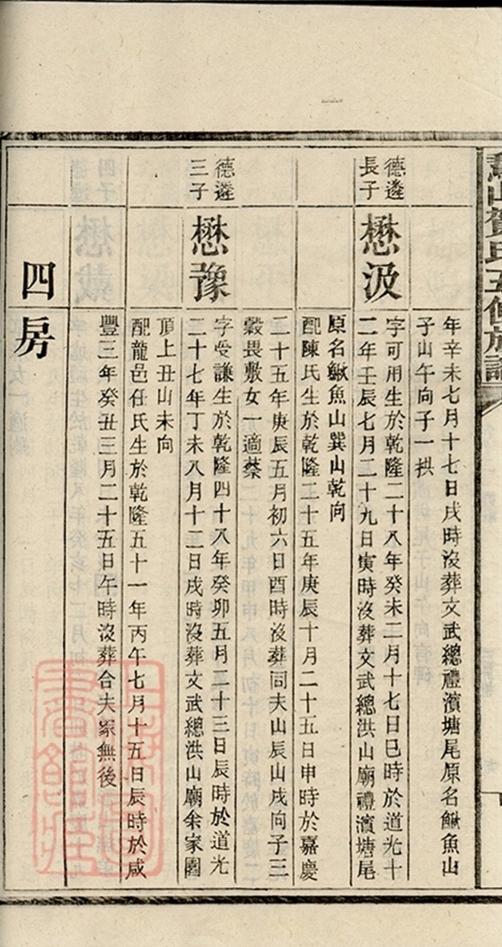 年辛未七月十七日戌時沒葬文武總禮濱塘尾原名鰍魚山
子山午向子一拱
德遴
長子
懋汲
字可用生於乾隆二十八年癸未二月十七日巳時於道光十
二年壬辰七月二十九日寅時沒葬文武總洪山廟禮濱塘尾
原名鰍魚山巽山乾向
配陳氏生於乾隆二十五年庚辰十月二十五日申時於嘉慶
二十五年庚辰五月初六日酉時沒葬同夫山辰山戌向子三
穀畏敷女一適蔡
德遴
三子
懋豫
字受謙生於乾隆四十八年癸卯五月二十三日辰時於道光
二十七年丁未八月十二日戌時沒葬文武總洪山廟余家園
頂上丑山未向
配龍邑任氏生於乾隆五十一年丙午七月十五日辰時於咸
豐三年癸丑三月二十五日午時沒葬合夫冢無後
四房